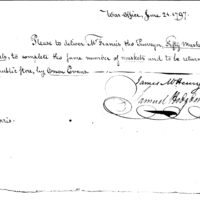 War office, June 21. 1797.
Please to deliver Mr Francis, the Purveyor, Fifty
to complete the same number of muskets and to be return
public store, by
James McHenry
Samuel Hodgdon